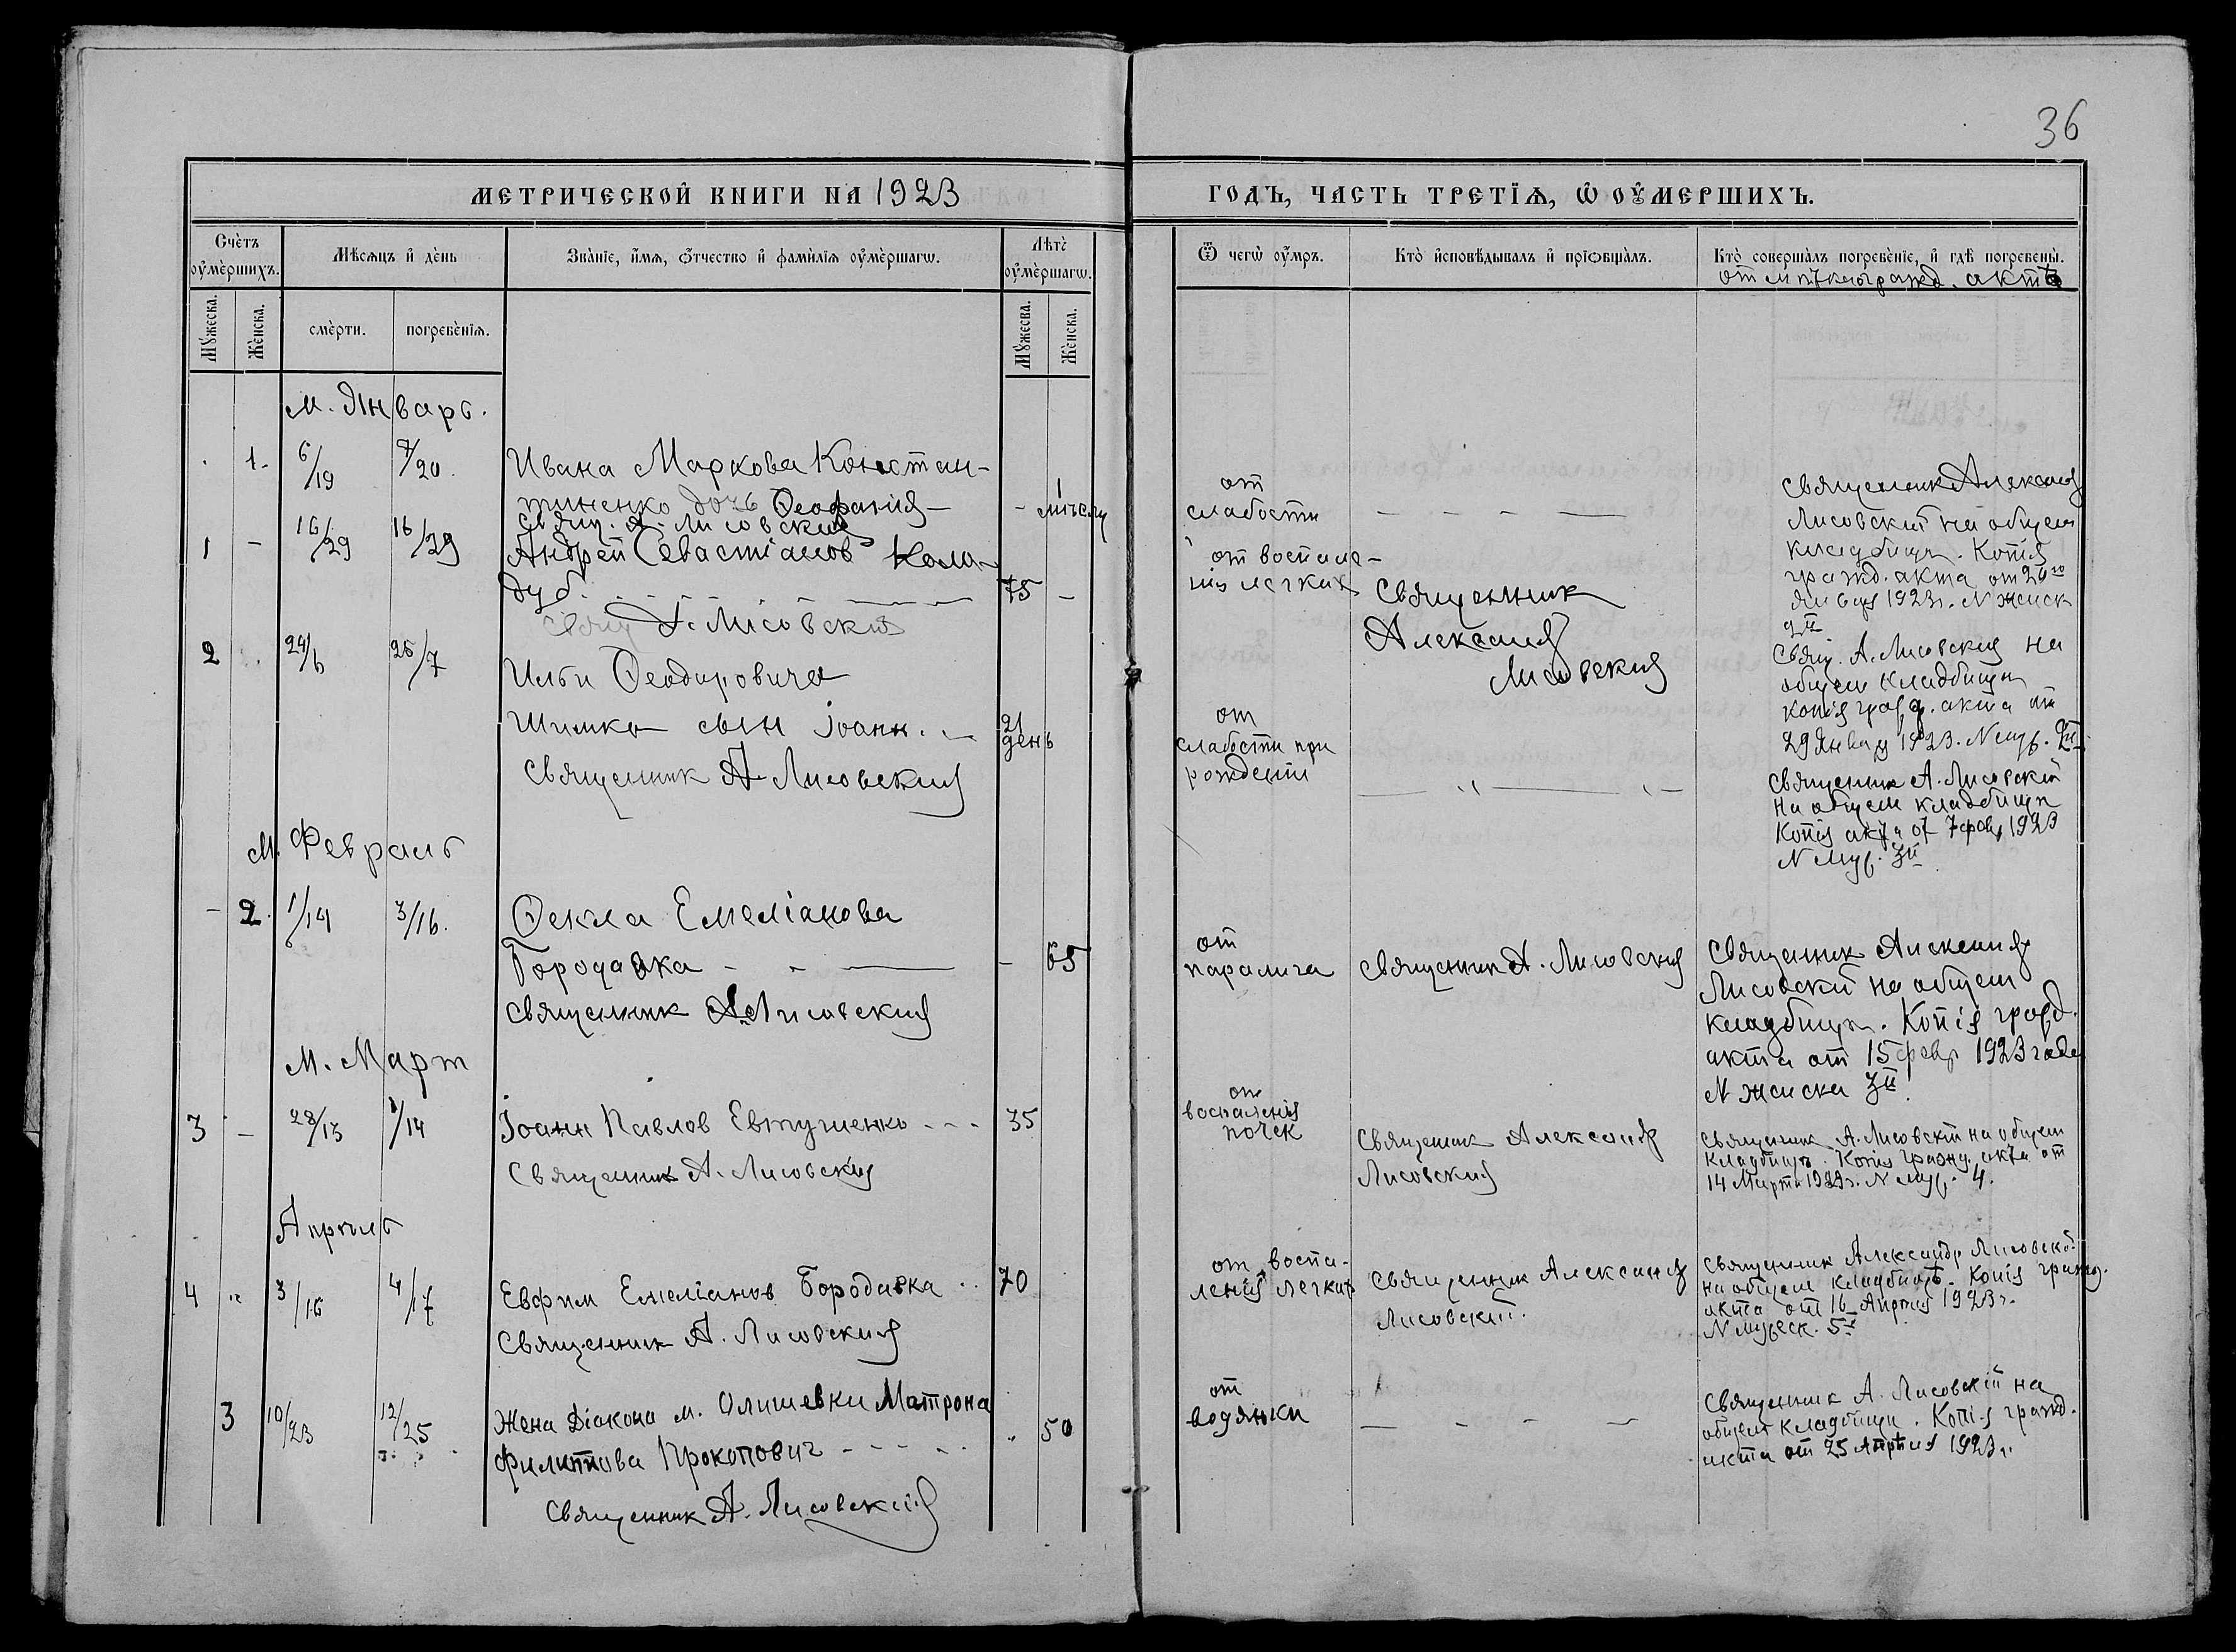 36
МЕТРИЧЕСКОЙ КНИГИ НА 1923
ГОДЪ, ЧАСТЬ ТРЕТІѦ, Ѡ ОУМЕРШИХЪ.
Счетъ оумершихъ.
Мѣсяцъ и день
Званіе, имя, отчество и фамилія оумершагѡ.
Лѣтъ оумершагѡ.
Ѿ чегѡ оумре.
Кто исповѣдывалъ и пріобщалъ.
Кто совершалъ погребеніе, и гдѣ погребены.
Мужеска.
Женска.
смерти.
погребенія.
Мужеска.
Женска.
м. Январь.
1. 6/19 7/20.
Ивана Маркова Констан-
тиненко дочь Ѳеофанія –
1 місяц
Свящ. А. Лисовский
от
слабости
Священник Александр
Лисовский на общем
кладбище. Копія
гражд. акта от 20го
Января 1923г. N женск
1 – 16/29 16/29
Андрей Севастіанов Коло-
дуб
75 –
Свящ А. Лисовский
от воспале-
нія легких
Священник
Александр
Лисовский
Свящ. А. Лисовский на
общем кладбище
копія гражд. акта от
29 Января 1923. N муж.
2 24/6 25/7
Ильи Ѳеодоровича
Шимко сын Іоанн.
21
день
Священник А. Лисовский
от
слабости при
рождении
Священник А. Лисовский
на общем кладбище
Копія акта от 7 фев. 1923
N муж.
м. Февраль
– 2. 1/14 3/16.
Ѳекла Емеліанова
Бородавка
– 65
Священник А. Лисовский
от
паралича
Священник А. Лисовский
Священник Александр
Лисовский на общем
кладбище. Копія гражд.
акта от 15 февр 1923 года
N женска
м. Март
3 – 28/13 1/14
Іоанн Павлов Евтушенко
35
Священник А. Лисовский
от
воспаленія
почек
Священник Александр
Лисовский
Священник А. Лисовский на общем
кладбище. Копія гражд. акта от
14 Марта 1923г. N муж. 4.
Апрѣль
4 " 3/16 4/17
Евфим Емеліанов Бородавка
70
Священник А. Лисовский
от воспа-
ленія легких
Священник Александр
Лисовский.
Священник Александр Лисовский
на общем кладбищѣ. Копія гражд.
акта от 16 Апрѣля 1923г.
N мужеск. 5й
3 10/23 12/25
Жена Діакона м. Олишевки Матрона
Филиппова Прокопович
" 50
Священник А. Лисовский
от
водянки
Священник А. Лисовскій на
общем кладбище. Копія гражд.
акта от 25 Апрѣля 1923г.